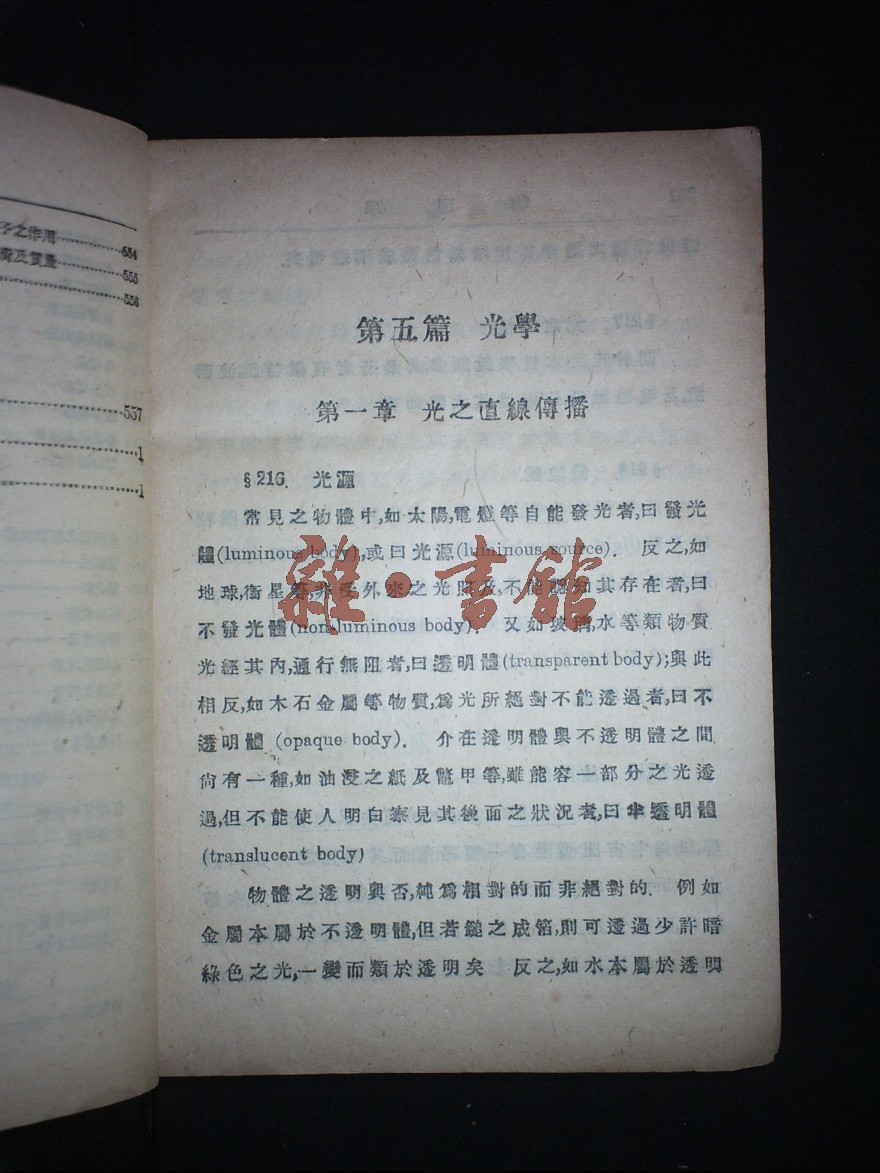 子之作用……554
荷及質量……555
……556
……557
……1
……1
第五篇 光學
第一章 光之直線傳播
§216. 光源
常見之物體中,如太陽,電燈等自能發光者,曰發光
體(luminous body),或曰光源(luminous source). 反之,如
地球,衛星等,非受外來之光照及,不能認知其存在者,曰
不發光體(non-luminous body). 又如玻璃,水等類物質
光經其內,通行無阻者,曰透明體(transparent body);與此
相反,如木石金屬等物質,爲光所絕對不能透過者,曰不
透明體 (opaque body). 介在透明體與不透明體之間
尙有一種,如油浸之紙及鼈甲等,雖能容一部分之光透
過,但不能使人明白察見其後面之狀況者,曰半透明體
(translucent body)
物體之透明與否,純爲相對的而非絕對的. 例如
金屬本屬於不透明體,但若鎚之成箔,則可透過少許暗
綠色之光,一變而類於透明矣 反之,如水本屬於透明
雜·書館